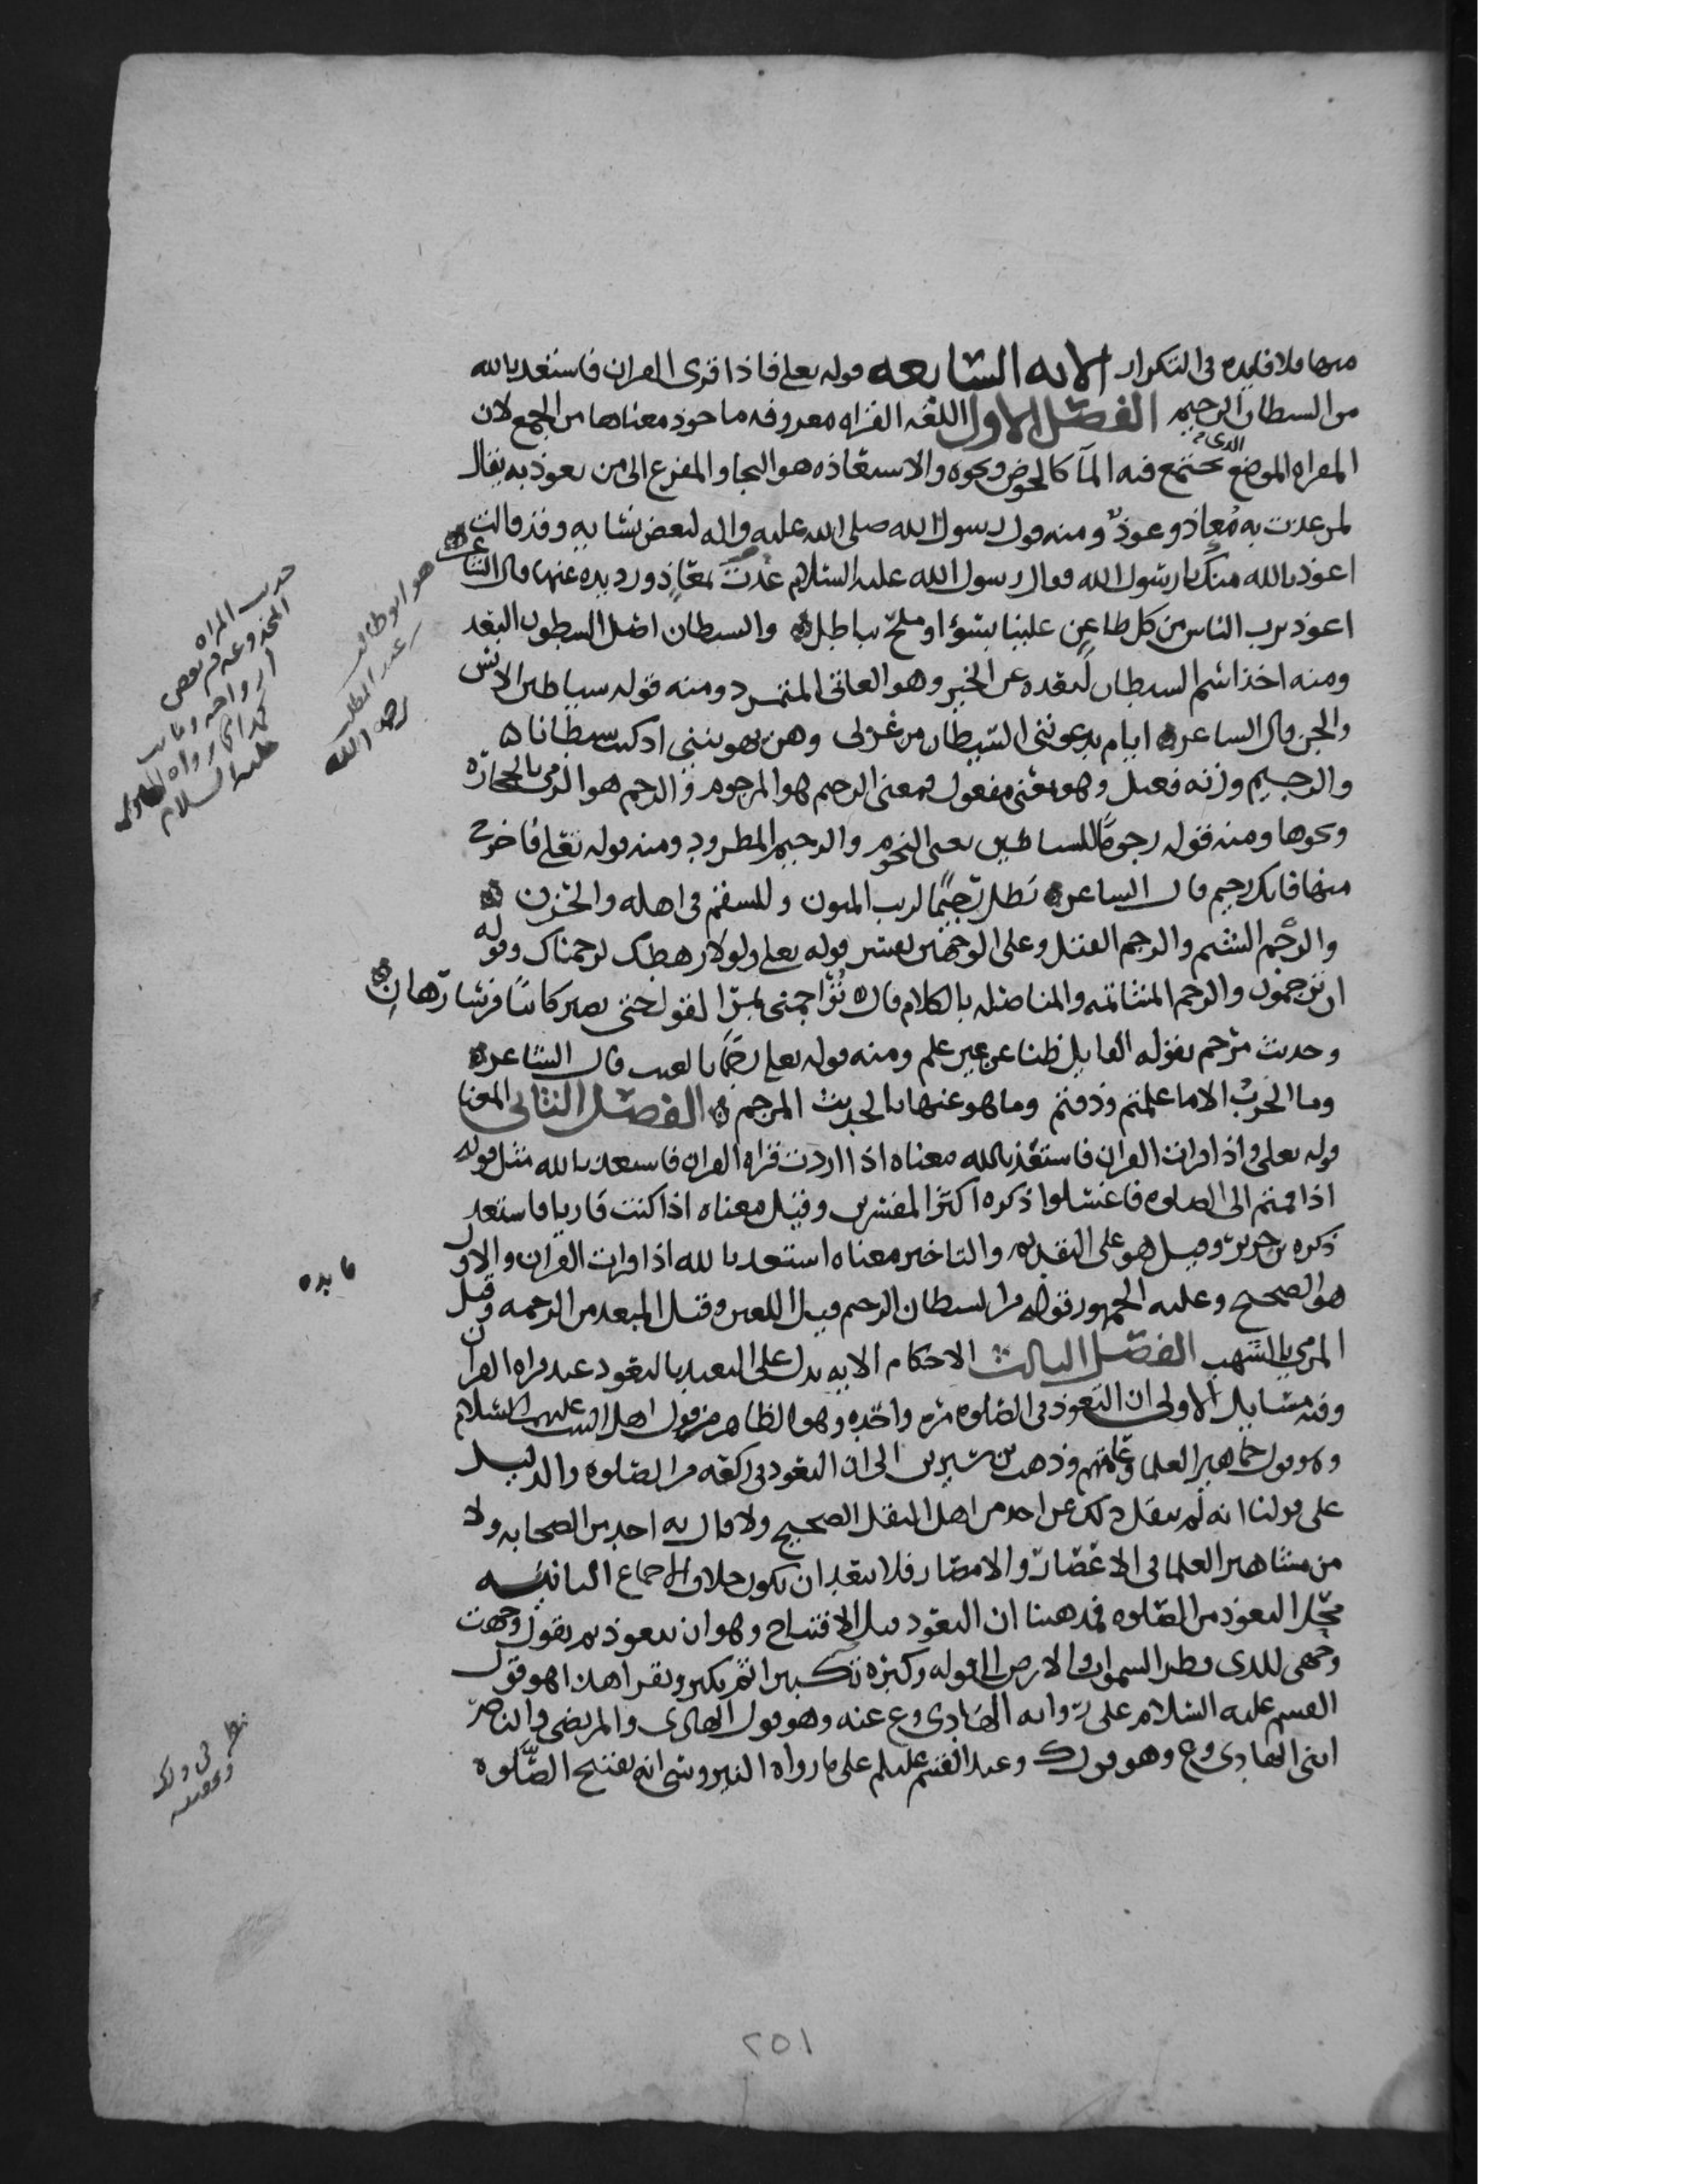 منها فلا فايده في التكرار الايه السابعه قوله تعلى فاذا قرى القران فاستعذ بالله
من الشيطان الرجيم الفصل الاول اللغه القراه معروفه ماخوذ معناها من الجمع لان
المقراه الموضع الذي يجتمع فيه المآ كالحوض ونحوه والاستعاذه هو اللجا والمفزع الى من يعوذ به يقال
لمن عذت به مُعاذ وعوذ ومنه قول رسول الله صلى الله عليه واله لبعض نسايه وقد قالت
اعوذ بالله منك يا رسول الله فقال رسول الله عليه السلام عُذتَ بمعَاذٍ ورد يده عنها قال الشاعر
اعوذ برب الناس من كل طاعن علينا بسوء او ملح بباطل والشيطان اصل الشطون البعد
ومنه اخذ اسم الشيطان لبعده عن الخير وهو العاتي المتمرد ومنه قوله شياطين الانس
والجن قال الشاعر ايام يدعونني الشيطان من غزلي وهن يهوينني اذ كنت شيطانا
والرجيم وزنه فعيل وهو بمعنى مفعول فمعنى الرجيم هو المرجوم والرجم هو الرمي بالحجاره
ونحوها ومنه قوله رجومًا للشياطين يعني النجوم والرجيم المطرود ومنه قوله تعلى فاخرج
منها فانك رجيم قال الشاعر تظل رجيمًا لريب المنون وللسقم في اهله والحزن
والرَّجم الشتم والرجم القتل وعلى الوجهين يفسر قوله تعلى ولولا رهطك لرجمناك وقوله
ان ترجمون والرجم المشاتمه والمناضله بالكلام قال تُراجمني بمرّ القول حتى نصير كاننا فرسا رهان
وحديث مرجم يقوله القايل ظنا عن غير علم ومنه قوله تعلى رجمًا بالغيب قال الشاعر
وما الحربُ الا ما علمتم وذقتم وما هو عنها بالحديث المرجم الفصل الثاني المعنى
قوله تعلى واذا قرات القران فاستعذ بالله معناه اذا اردت قراه القران فاستعذ بالله مثل قوله
اذا قمتم الى الصلوه فاغسلوا ذكره اكثر المفسرين وقيل معناه اذا كنت قاريا فاستعذ
ذكره بن جرير وقيل هو على التقديم والتاخير معناه استعذ بالله اذا قرات القران والاول
هو الصحيح وعليه الجمهور قوله من الشيطان الرجيم قيل اللعين وقيل المبعد من الرحمه وقيل
المرمي بالشهب الفصل الثالث الاحكام الايه تدل على التعبد بالتعوذ عند قراه القران
وفيه مسايل الاولى ان التعوذ في الصلوه مره واحده وهو الظاهر من قول اهل البيت عليهم السلام
وهو قول جماهير العلما وعامتهم وذهب بن سيرين الى ان التعوذ في كل ركعه من الصلوه والدليل
على قولنا انه لم ينقل ذلك عن احد من اهل النقل الصحيح ولا قال به احد من الصحابه ولا
من مشاهير العلما في الاعصار والامصار فلا يبعد ان يكون خلاف الاجماع الثانيه
محل التعوذ من الصلوه فمذهبنا ان التعوذ قبل الافتتاح وهو ان يتعوذ ثم يقول وجهت
وجهي للذي فطر السموات والارض الى قوله وكبره تكبيرا ثم يكبر ويقرا هذا هو قول
القسم عليه السلام على رواية الهادي ع عنه وهو قول الهادي والمرتضى والناصر
ابني الهادي ع وهو قول ك وعند القسم عليلم على ما رواه النيروسي انه يفتتح الصلوه
هو ابو طالب
بن عبد المطلب
رحمه الله
حديث المراه
المخدوعه من بعض
ازواجه
عليه السلام
فايده
٢٥١